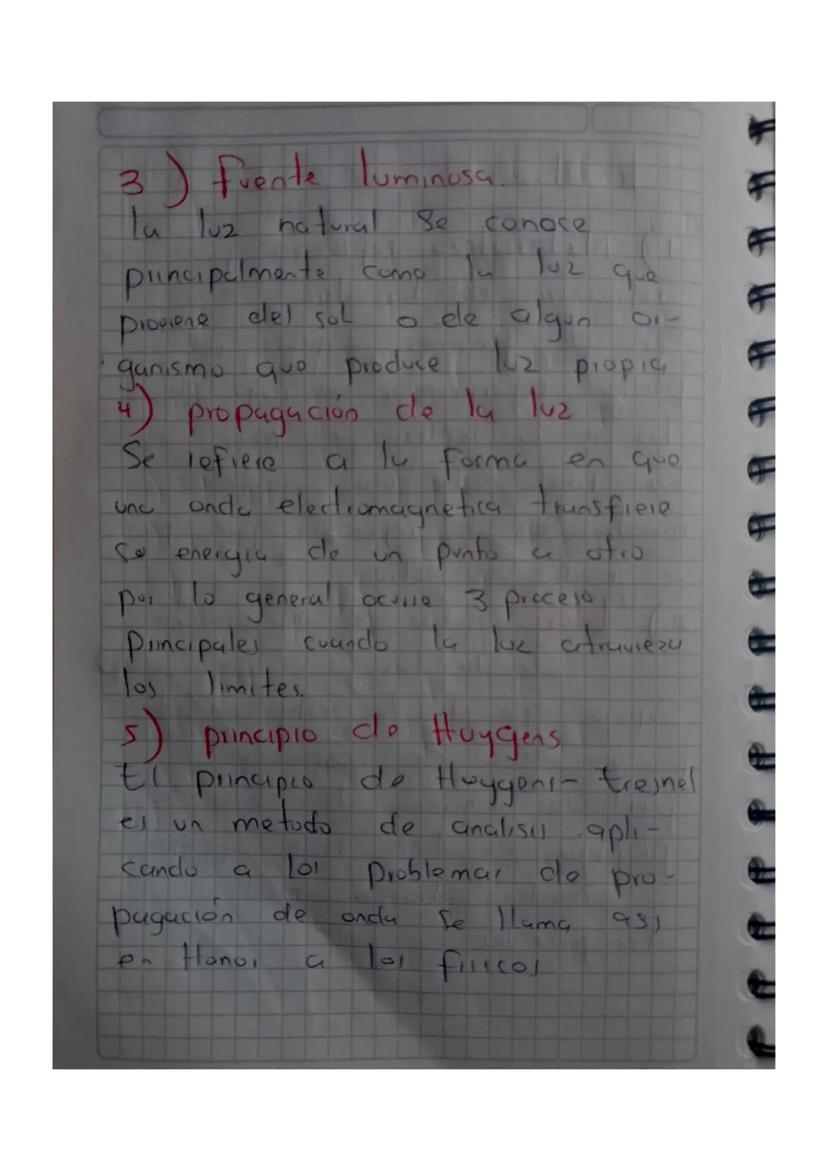 3) fuente luminosa.
la luz natural se conoce
principalmente como la luz que
proviene del sol o de algun or-
ganismo que produce luz propia
4) propagación de la luz
Se refiere a la forma en que
una onda electromagnetica transfiere
so energia de un punto a otro
por lo general ocurre 3 proceso
principales cuando la luz atravieza
los limites.
5) principio de Huygens
El principio de Huygens-tresnel
es un metodo de analisis apli-
cando a los problemas de pro-
pagación de onda se llama asi
en Honor a los fisicos